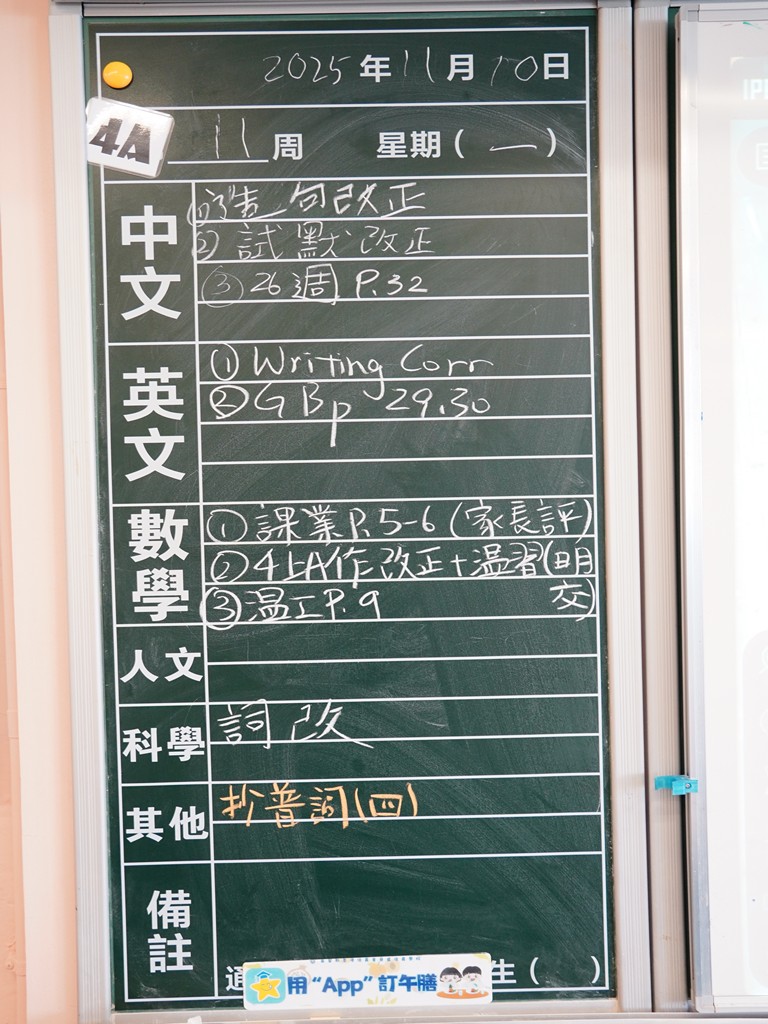 2025年11月10日
4A
11周 星期(一)
中文
①造句改正
②試默改正
③26週 P.32
英文
①Writing Corr
②GB p 29.30
數學
①課業P.5-6(家長評)
②4上A作改正+溫習(明
交)
③溫工P.9
人文
科學
詞改
其他
抄普詞(四)
備註
生( )
用“App”訂午膳
IP